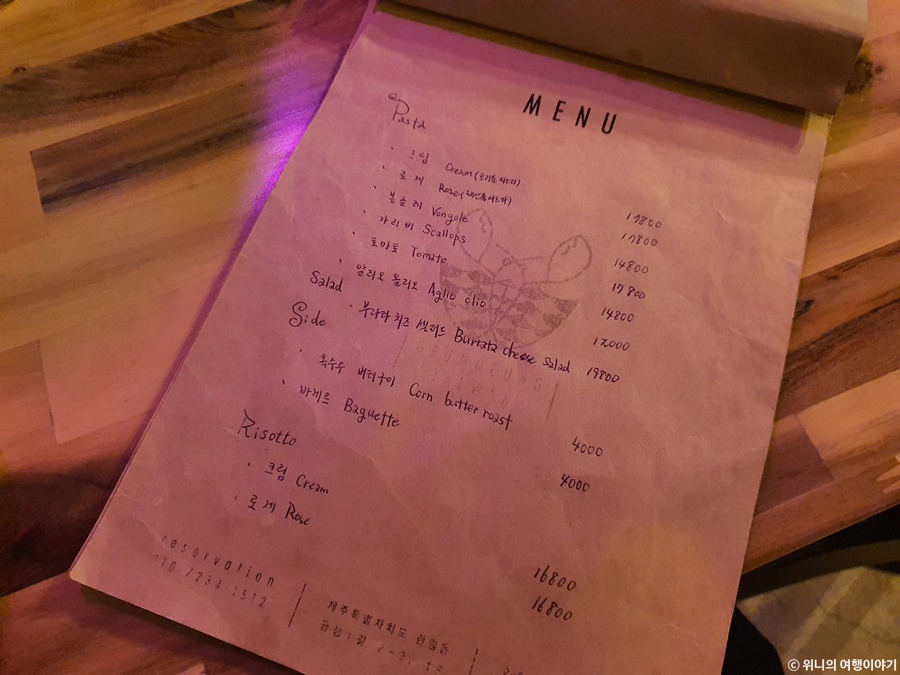 MENU
Pasta
· 크림 Cream
17800
· 로제 Rose
17800
· 봉골레 Vongole
14800
· 가리비 Scallops
17800
· 토마토 Tomato
14800
· 알리오 올리오 Aglio olio
12000
Salad
· 부라타 치즈 샐러드 Burrata cheese salad 19800
Side
· 옥수수 버터구이 Corn butter roast
4000
· 바게트 Baguette
4000
Risotto
· 크림 Cream
16800
· 로제 Rose
16800
reservation
010-7234-1512
제주특별자치도 한림읍
ⓒ 위니의 여행이야기